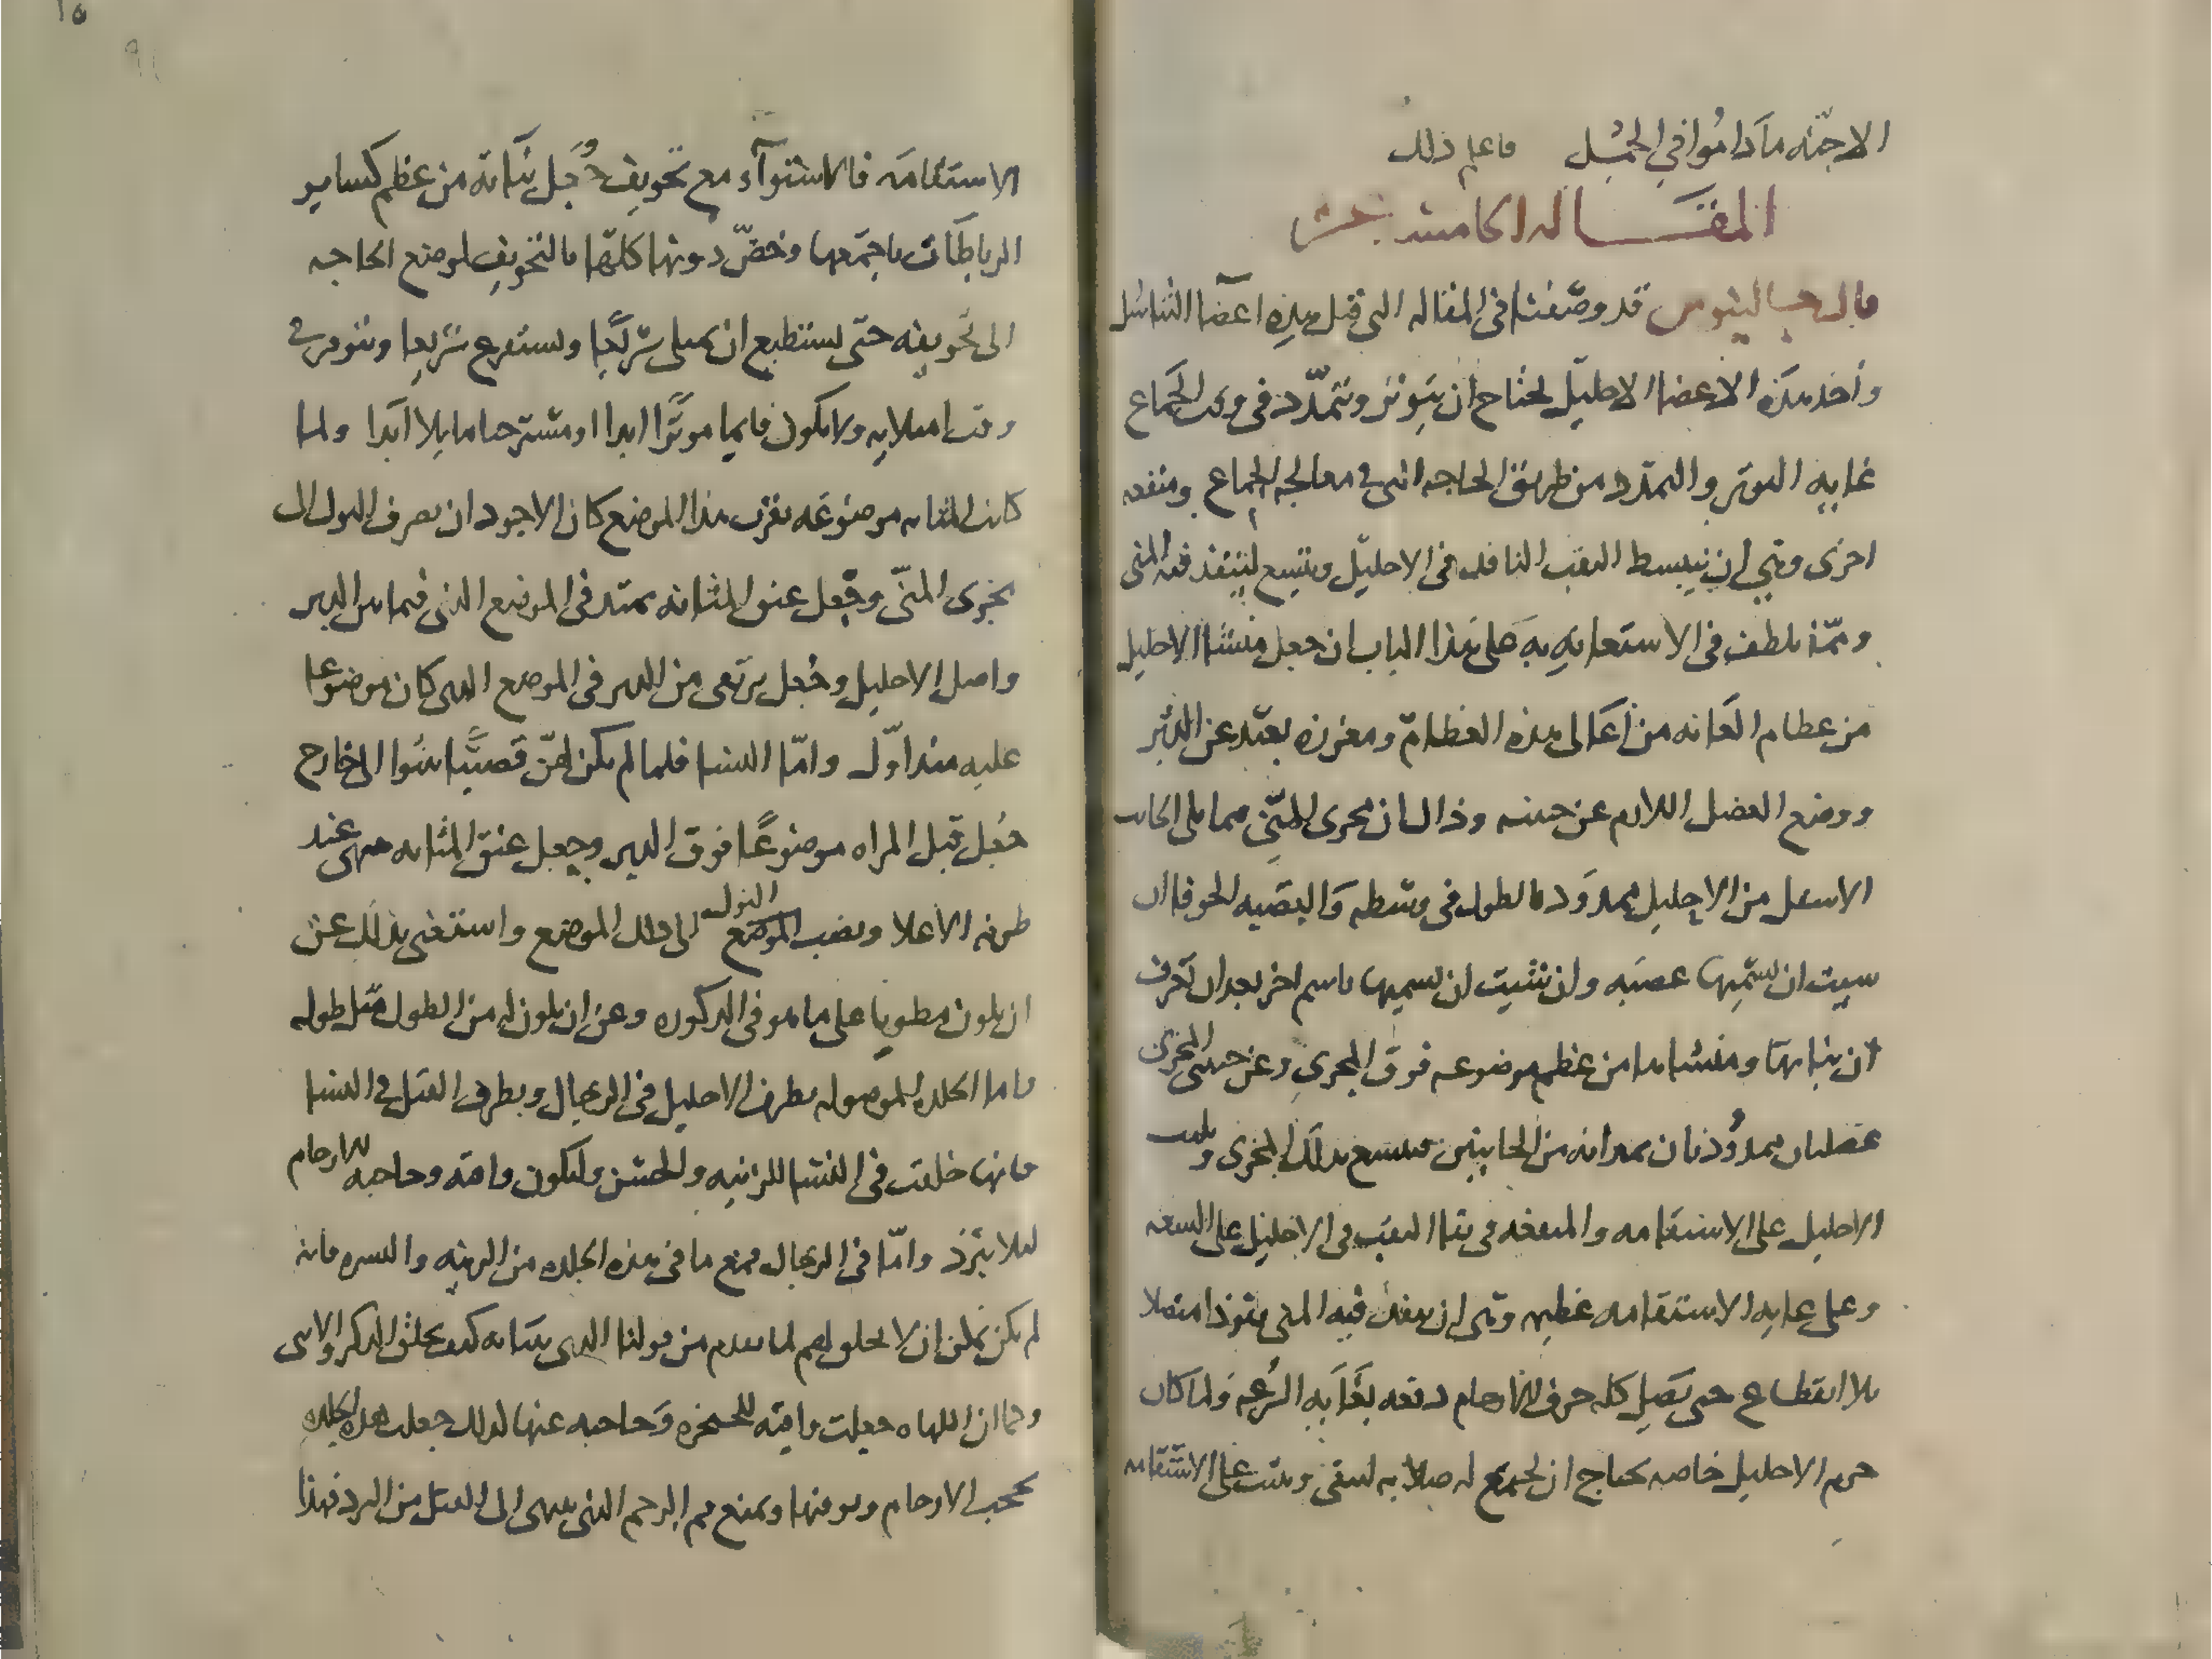 الاجنّه ما داموا في الحبل فاعلم ذلك
المقاله الخامسه عشر
قال جالينوس قد وصفنا في المقاله التى قبل هذه اعضا التناسل
وأحد هذه الاعضا الاحليل يحتاج ان يتوتر ويتمدّد في وقت الجماع
غايه التوتر والتمدد من طريق الحاجه التى فى معالجه الجماع ومنفعه
اخرى وهي ان ينبسط الثقب النافذ في الاحليل ويتسع لينفذ فيه المنى
وممّا يلطف في الاستعانه به على هذا الباب ان جعل منشا الاحليل
من عظام العانه من أعالى هذه العظام ومغرزه بعيد عن الدبر
ووضع العضل اللازم عن جنبيه وذاك ان مجرى المنّي مما يلى الجانب
الاسفل من الاحليل ممدود بالطول في وسطه والعصبه الجوفا ان
شيت ان تسمّيها عصبه وان شيت ان تسميها باسم اخر بعد ان تعرف
ان نباتها ومنشاها من عظم موضوعه فوق المجرى وعن جنبى المجرى
عضلتان ممدودتان يمدانه من الجانبين فيتسع بذلك المجرى ويثبت
الاحليل على الاستقامه والمنفعه في بقا الثقب في الاحليل على السعه
وعلى غايه الاستقامه عظيمه وهى ان ينفذ فيه المنى نفوذا متصلا
بلا انقطاع حتى يصل كله جوف الارحام دفعه بغايه السرعه ولما كان
جرم الاحليل خاصه يحتاج ان يجمع له صلابه لتبقى وتثبت على الاستقامه
الاستقامه فالاستوآء مع تجويف جعل نباته من عظم كساير
الرباطات باجمعها وخصّ دونها كلّها بالتجويف لموضع الحاجه
الى تجويفه حتى يستطيع ان يمتلى سريعا ويستفرغ سريعا ويتوتر فى
وقت امتلايه ولا يكون قايما موترًا ابدا او مسترخيا مايلا أبدا ولما
كانت المثانه موضوعه بقرب هذا الموضع كان الاجود ان يصرف البول الى
مجرى المنّى وجعل عنق المثانه يمتد في الموضع الذي فيما بين الدبر
واصل الاحليل وجُعل يرتقى من الدبر في الموضع الذى كان موضوعا
عليه منذ اوّل وامّا النسا فلما لم يكن لهنّ قضيبا نتوا الى خارج
جُعل قبل المراه موضوعًا فوق الدبر وجعل عنق المثانه ينتهى عند
طرفه الأعلا ويصب الموضع البول الى ذلك الموضع واستغنى بذلك عن
ان يكون مطويا على ما هو في الذكوره وعن ان يكون له من الطول مثل طوله
فاما الجلده الموصوله بطرف الاحليل في الرجال وبطرف القبل فى النسا
فانها خلقت في النسا للزينه والحسن ولتكون واقيه وحاجبه للارحام
لئلا تبرد وامّا في الرجال فمع ما في هذه الجلده من الزينه والستره فانه
لم يكن يمكن ان لا تخلق لهم لما تقدم من قولنا الذى بيّنا به كيف يخلق الذكر والانثى
وكما ان اللهاه جعلت واقيه للحنجره وحاجبه عنها كذلك جعلت هذه الجلده
تحجب الارحام وتوقيها وتمنع فم الرحم الذى ينتهى الى القبل من البرد فهذا